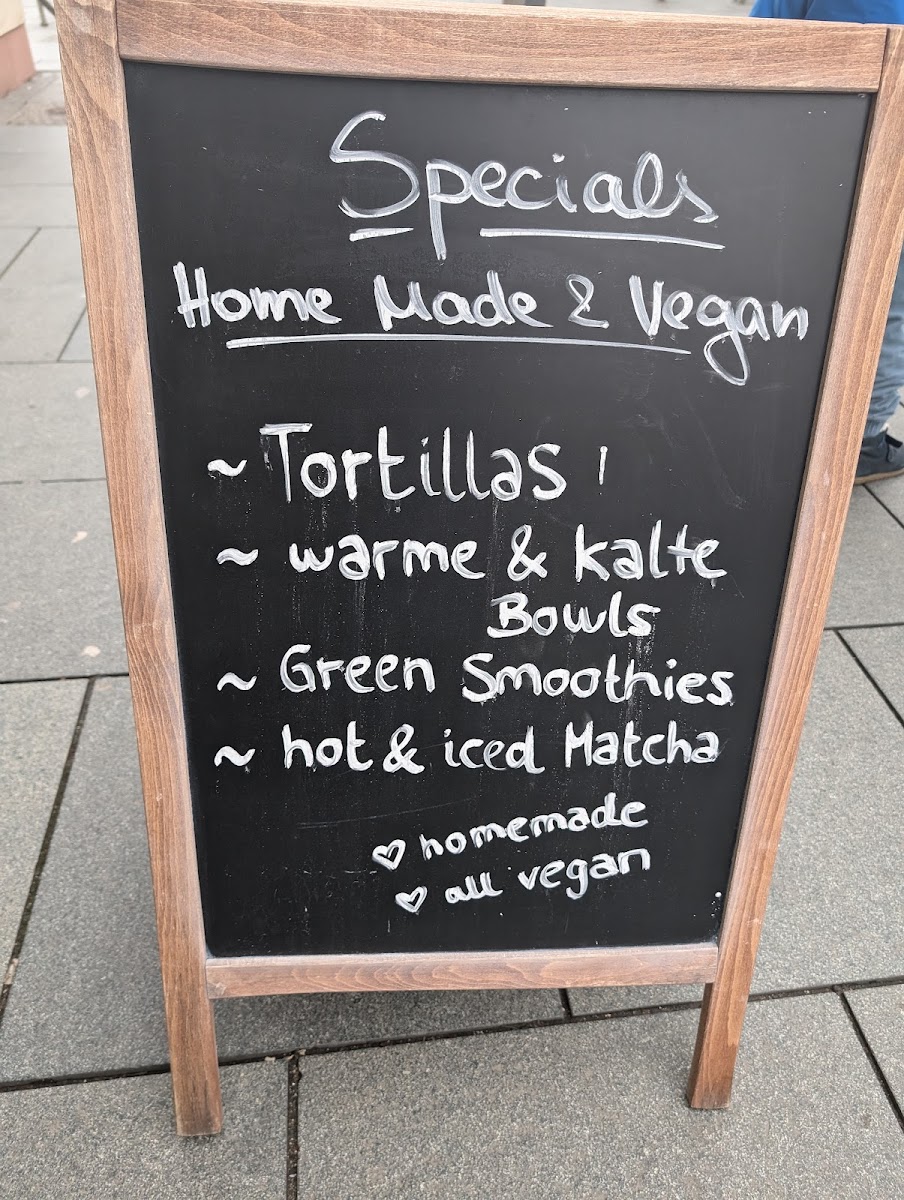 Specials
Home Made & Vegan
~ Tortillas !
~ warme & kalte
Bowls
~ Green Smoothies
~ hot & iced Matcha
♡ homemade
♡ all vegan